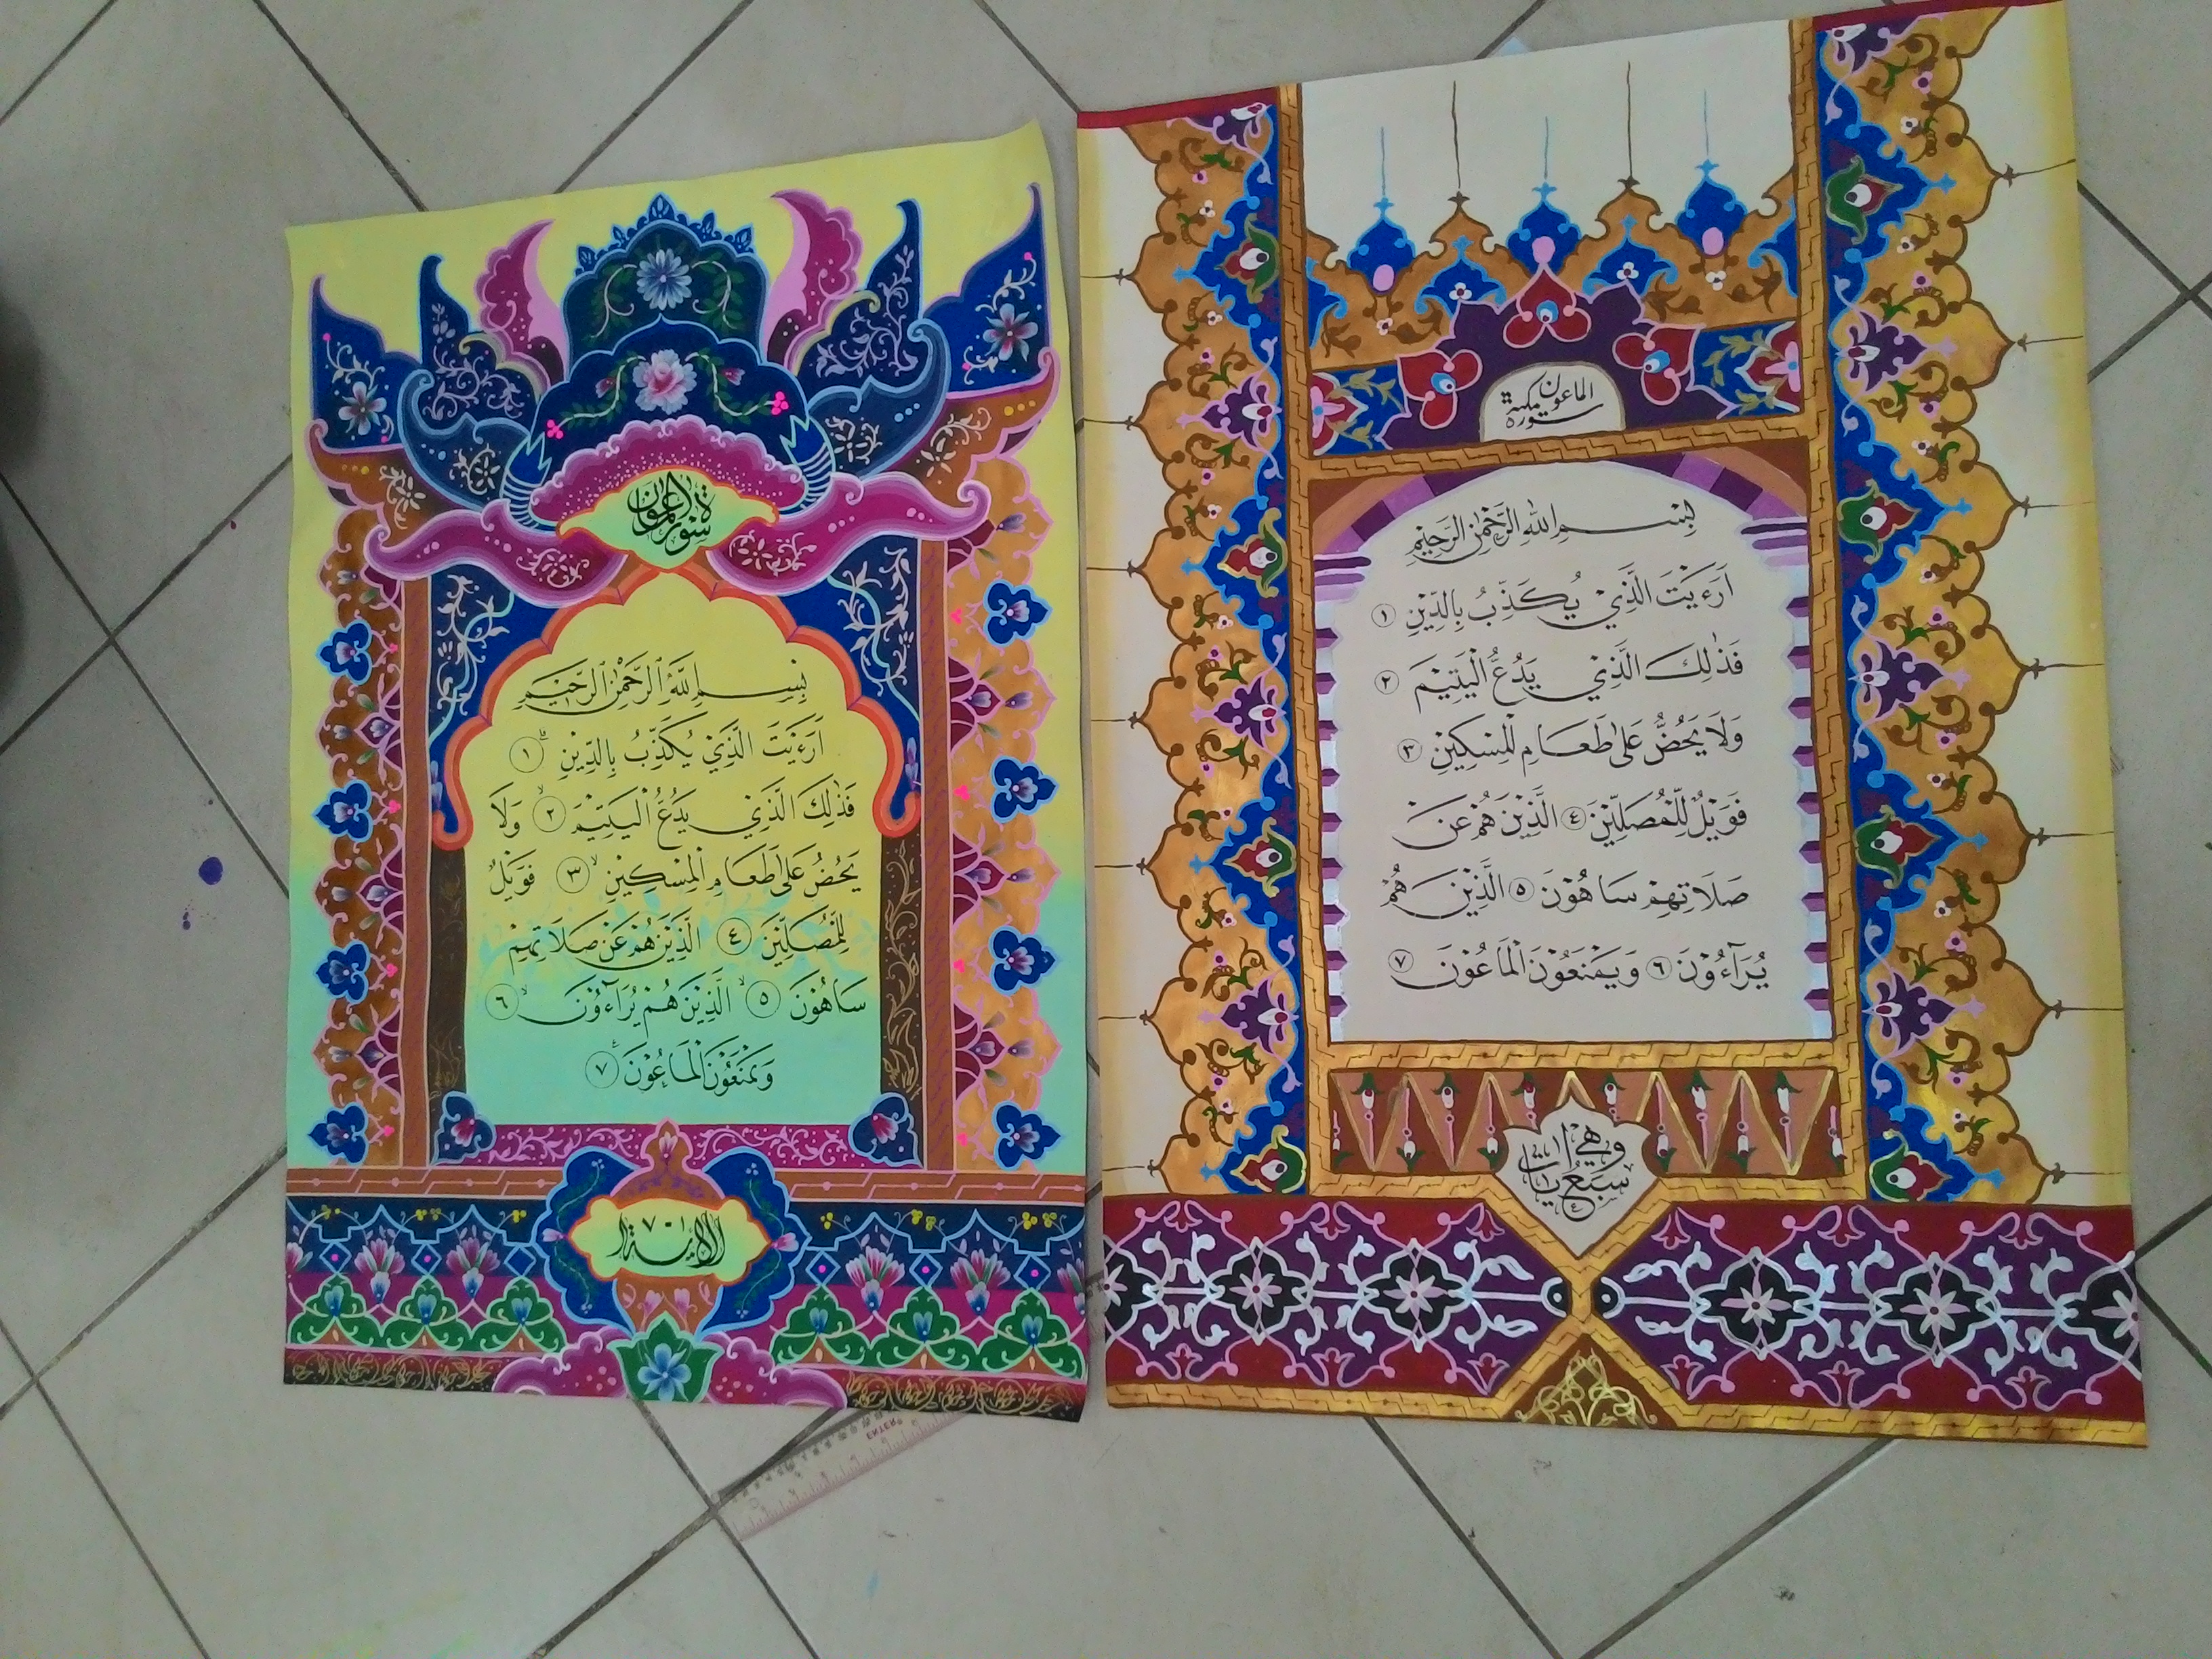 سورة الماعون
بِسْمِ اللَّهِ الرَّحْمٰنِ الرَّحِيْمِ
اَرَءَيْتَ الَّذِيْ يُكَذِّبُ بِالدِّيْنِ ١
فَذٰلِكَ الَّذِيْ يَدُعُّ الْيَتِيْمَ ٢ وَلَا
يَحُضُّ عَلٰى طَعَامِ الْمِسْكِيْنِ ٣ فَوَيْلٌ
لِلْمُصَلِّيْنَ ٤ الَّذِيْنَ هُمْ عَنْ صَلَاتِهِمْ
سَاهُوْنَ ٥ الَّذِيْنَ هُمْ يُرَآءُوْنَ ٦
وَيَمْنَعُوْنَ الْمَاعُوْنَ ٧
الاية ١-٧
سورة الماعون مكية
بِسْمِ اللهِ الرَّحْمٰنِ الرَّحِيْمِ
اَرَءَيْتَ الَّذِيْ يُكَذِّبُ بِالدِّيْنِ ١
فَذٰلِكَ الَّذِيْ يَدُعُّ الْيَتِيْمَ ٢
وَلَا يَحُضُّ عَلٰى طَعَامِ الْمِسْكِيْنِ ٣
فَوَيْلٌ لِّلْمُصَلِّيْنَ ٤ الَّذِيْنَ هُمْ عَنْ
صَلَاتِهِمْ سَاهُوْنَ ٥ الَّذِيْنَ هُمْ
يُرَآءُوْنَ ٦ وَيَمْنَعُوْنَ الْمَاعُوْنَ ٧
وهي سبع ايات
ENTER